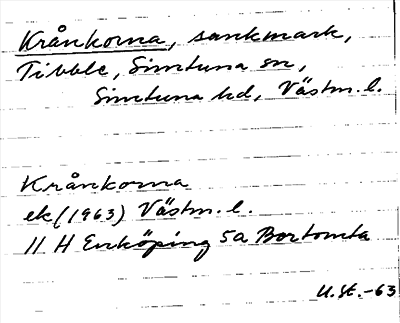 Krånkorna, sankmark,
Tibble, Simtuna sn,
Simtuna hd, Västm. l.
Krånkorna
ek (1963) Västm. l.
11 H Enköping 5a Bortomta
U.St.-63